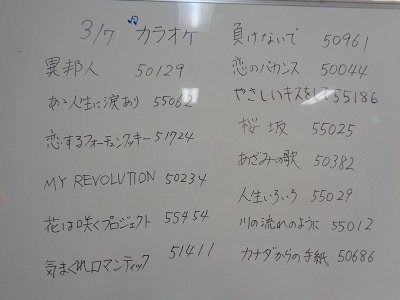 3/7 ♬ カラオケ
異邦人 50129
あゝ人生に涙あり 55062
恋するフォーチュンクッキー 51724
MY REVOLUTION 50234
花は咲くプロジェクト 55454
気まぐれロマンティック 51411
負けないで 50961
恋のバカンス 50044
やさしいキスをして 55186
桜坂 55025
あざみの歌 50382
人生いろいろ 55029
川の流れのように 55012
カナダからの手紙 50686